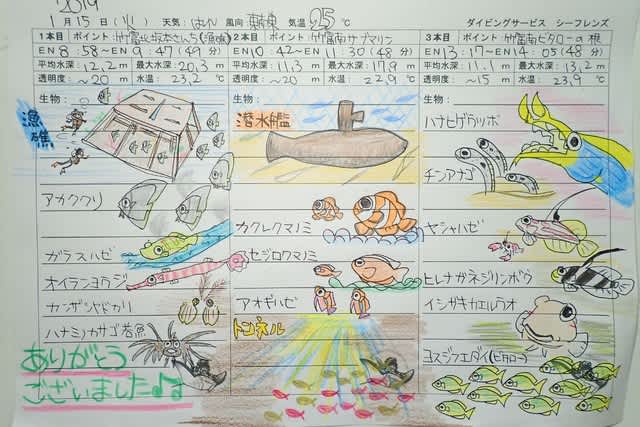 2019
1月15日(火) 天気: はれ 風向 気温 25℃ ダイビングサービス シーフレンズ
1本目 ポイント: 竹富 (漁礁) 2本目 ポイント: 竹富南サブマリン 3本目 ポイント: 竹富南ビタローの根
EN 8:58〜EX 9:47 (49分) EN 10:42〜EX 11:31 (48分) EN 13:17〜EX 14:05 (48分)
平均水深: 12,2m 最大水深: 20,3m 平均水深: 11,3m 最大水深: 17,9m 平均水深: 11,1m 最大水深: 13,2m
透明度: 〜20m 水温: 23,2℃ 透明度: 〜20m 水温: 22,9℃ 透明度: 〜15m 水温: 23,9℃
生物:
漁礁
アカククリ
ガラスハゼ
オイランヨウジ
カンザシヤドカリ
ハナミノカサゴ若魚
ありがとう
ございました♪♪
生物:
潜水艦
カクレクマノミ
セジロクマノミ
アオギハゼ
トンネル
生物:
ハナヒゲウツボ
チンアナゴ
ヤシャハゼ
ヒレナガネジリンボウ
イシガキカエルウオ
ヨスジフエダイ(ビタロー)